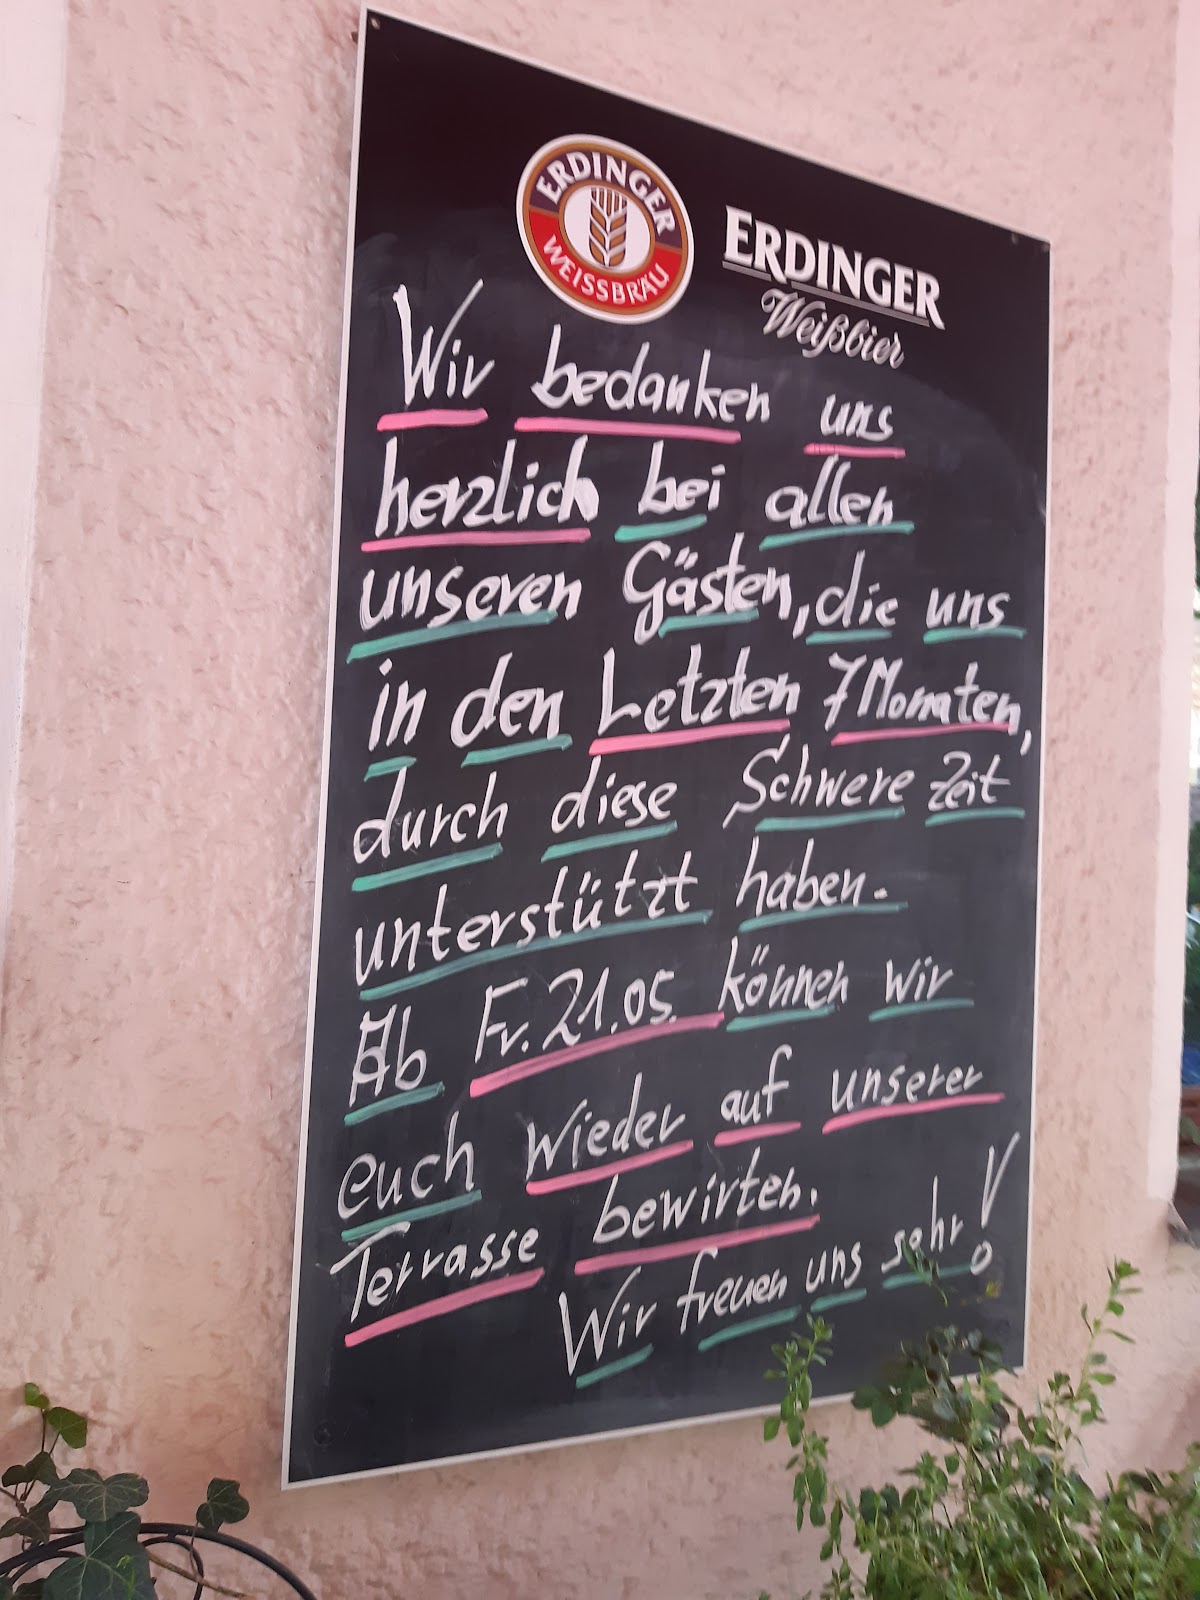 ERDINGER
WEISSBRÄU
ERDINGER
Weißbier
Wir bedanken uns
herzlich bei allen
unseren Gästen, die uns
in den Letzten 7 Monaten,
durch diese Schwere Zeit
unterstützt haben.
Ab Fr. 21.05. können wir
euch wieder auf unserer
Terrasse bewirten.
Wir freuen uns sehr!